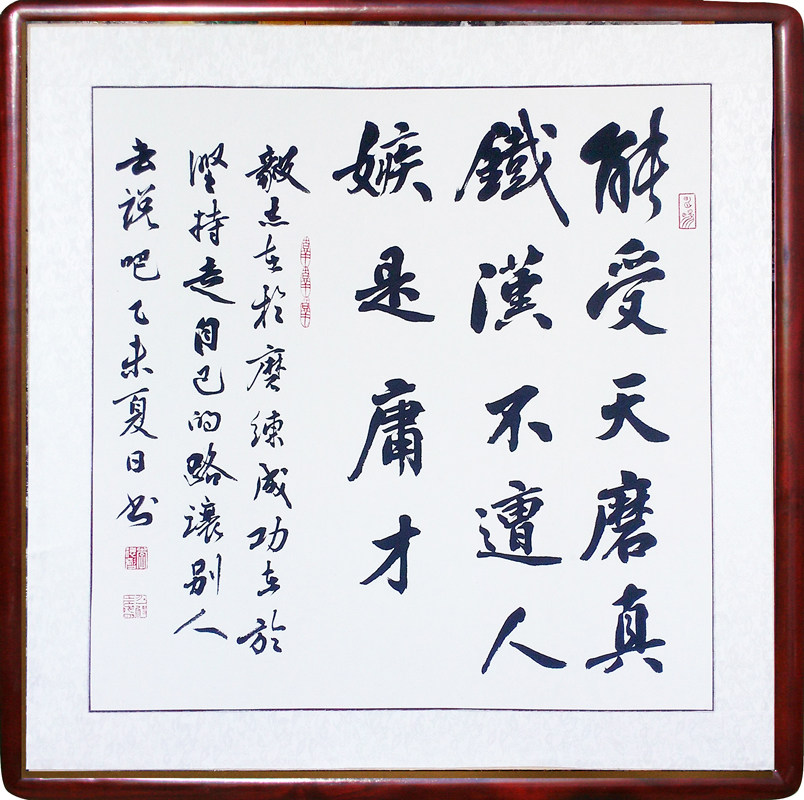 能受天磨真
鐵漢不遭人
嫉是庸才
毅志在於磨練成功在於
堅持走自己的路讓別人
去说吧乙未夏日书